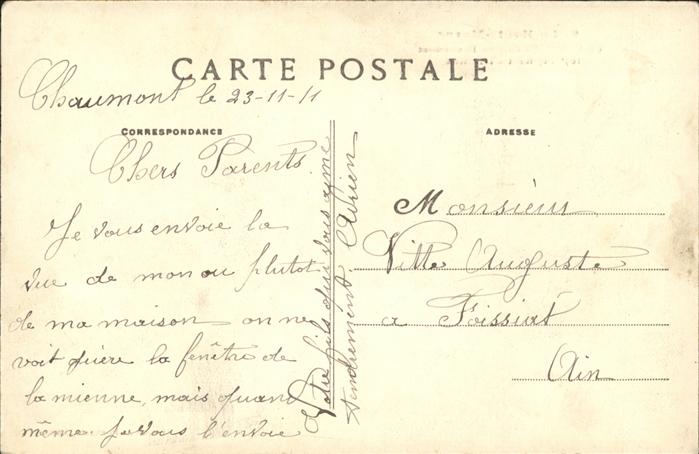 CARTE POSTALE
Chaumont le 23-11-11
CORRESPONDANCE
Chers Parents.
Je vous envoie la
vue de mon ou plutot
de ma maison on ne
voit guère la fenêtre de
la mienne, mais quand
même je vous l'envoie
Votre fils qui vous aime
tendrement. Adrien
ADRESSE
Monsieur
Ville Auguste
a Foissiat
Ain